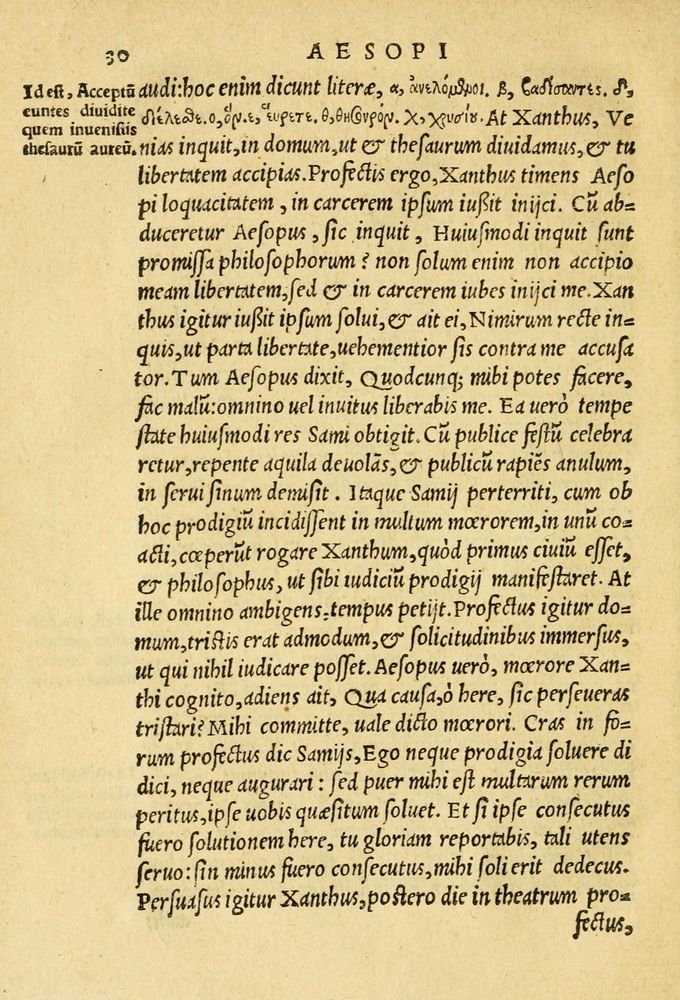 30
AESOPI
Id est, Acceptū
euntes diuidite
quem inuenistis
thesaurū aureū.
audi: hoc enim dicunt literæ, α, ἀνελόμϸροι. β, βαδίσαντες. δ,
διέλεσθε. ο, ὅν. ε, εὕρετε. θ, θησαυρόν. χ, χρυσίου. At Xanthus, Ve
nias inquit, in domum, ut & thesaurum diuidamus, & tu
libertatem accipias. Profectis ergo, Xanthus timens Aeso
pi loquacitatem, in carcerem ipsum iußit inijci. Cū ab=
duceretur Aesopus, sic inquit, Huiusmodi inquit sunt
promissa philosophorum? non solum enim non accipio
meam libertatem, sed & in carcerem iubes inijci me. Xan
thus igitur iußit ipsum solui, & ait ei, Nimirum recte in=
quis, ut parta libertate, uehementior sis contra me accusa
tor. Tum Aesopus dixit, Quodcunq; mihi potes facere,
fac malū: omnino uel inuitus liberabis me. Ea uerò tempe
state huiusmodi res Sami obtigit. Cū publice festū celebra
retur, repente aquila deuolās, & publicū rapiēs anulum,
in serui sinum demisit. Itaque Samij perterriti, cum ob
hoc prodigiū incidissent in multum mœrorem, in unū co=
acti, cœperūt rogare Xanthum, quòd primus ciuiū esset,
& philosophus, ut sibi iudiciū prodigij manifestaret. At
ille omnino ambigens, tempus petijt. Profectus igitur do=
mum, tristis erat admodum, & solicitudinibus immersus,
ut qui nihil iudicare posset. Aesopus uerò, mœrore Xan=
thi cognito, adiens ait, Qua causa, ò here, sic perseueras
tristari? Mihi committe, uale dicto mœrori. Cras in fo=
rum profectus dic Samijs, Ego neque prodigia soluere di
dici, neque augurari: sed puer mihi est multarum rerum
peritus, ipse uobis quæsitum soluet. Et si ipse consecutus
fuero solutionem here, tu gloriam reportabis, tali utens
seruo: sin minus fuero consecutus, mihi soli erit dedecus.
Persuasus igitur Xanthus, postero die in theatrum pro=
fectus,